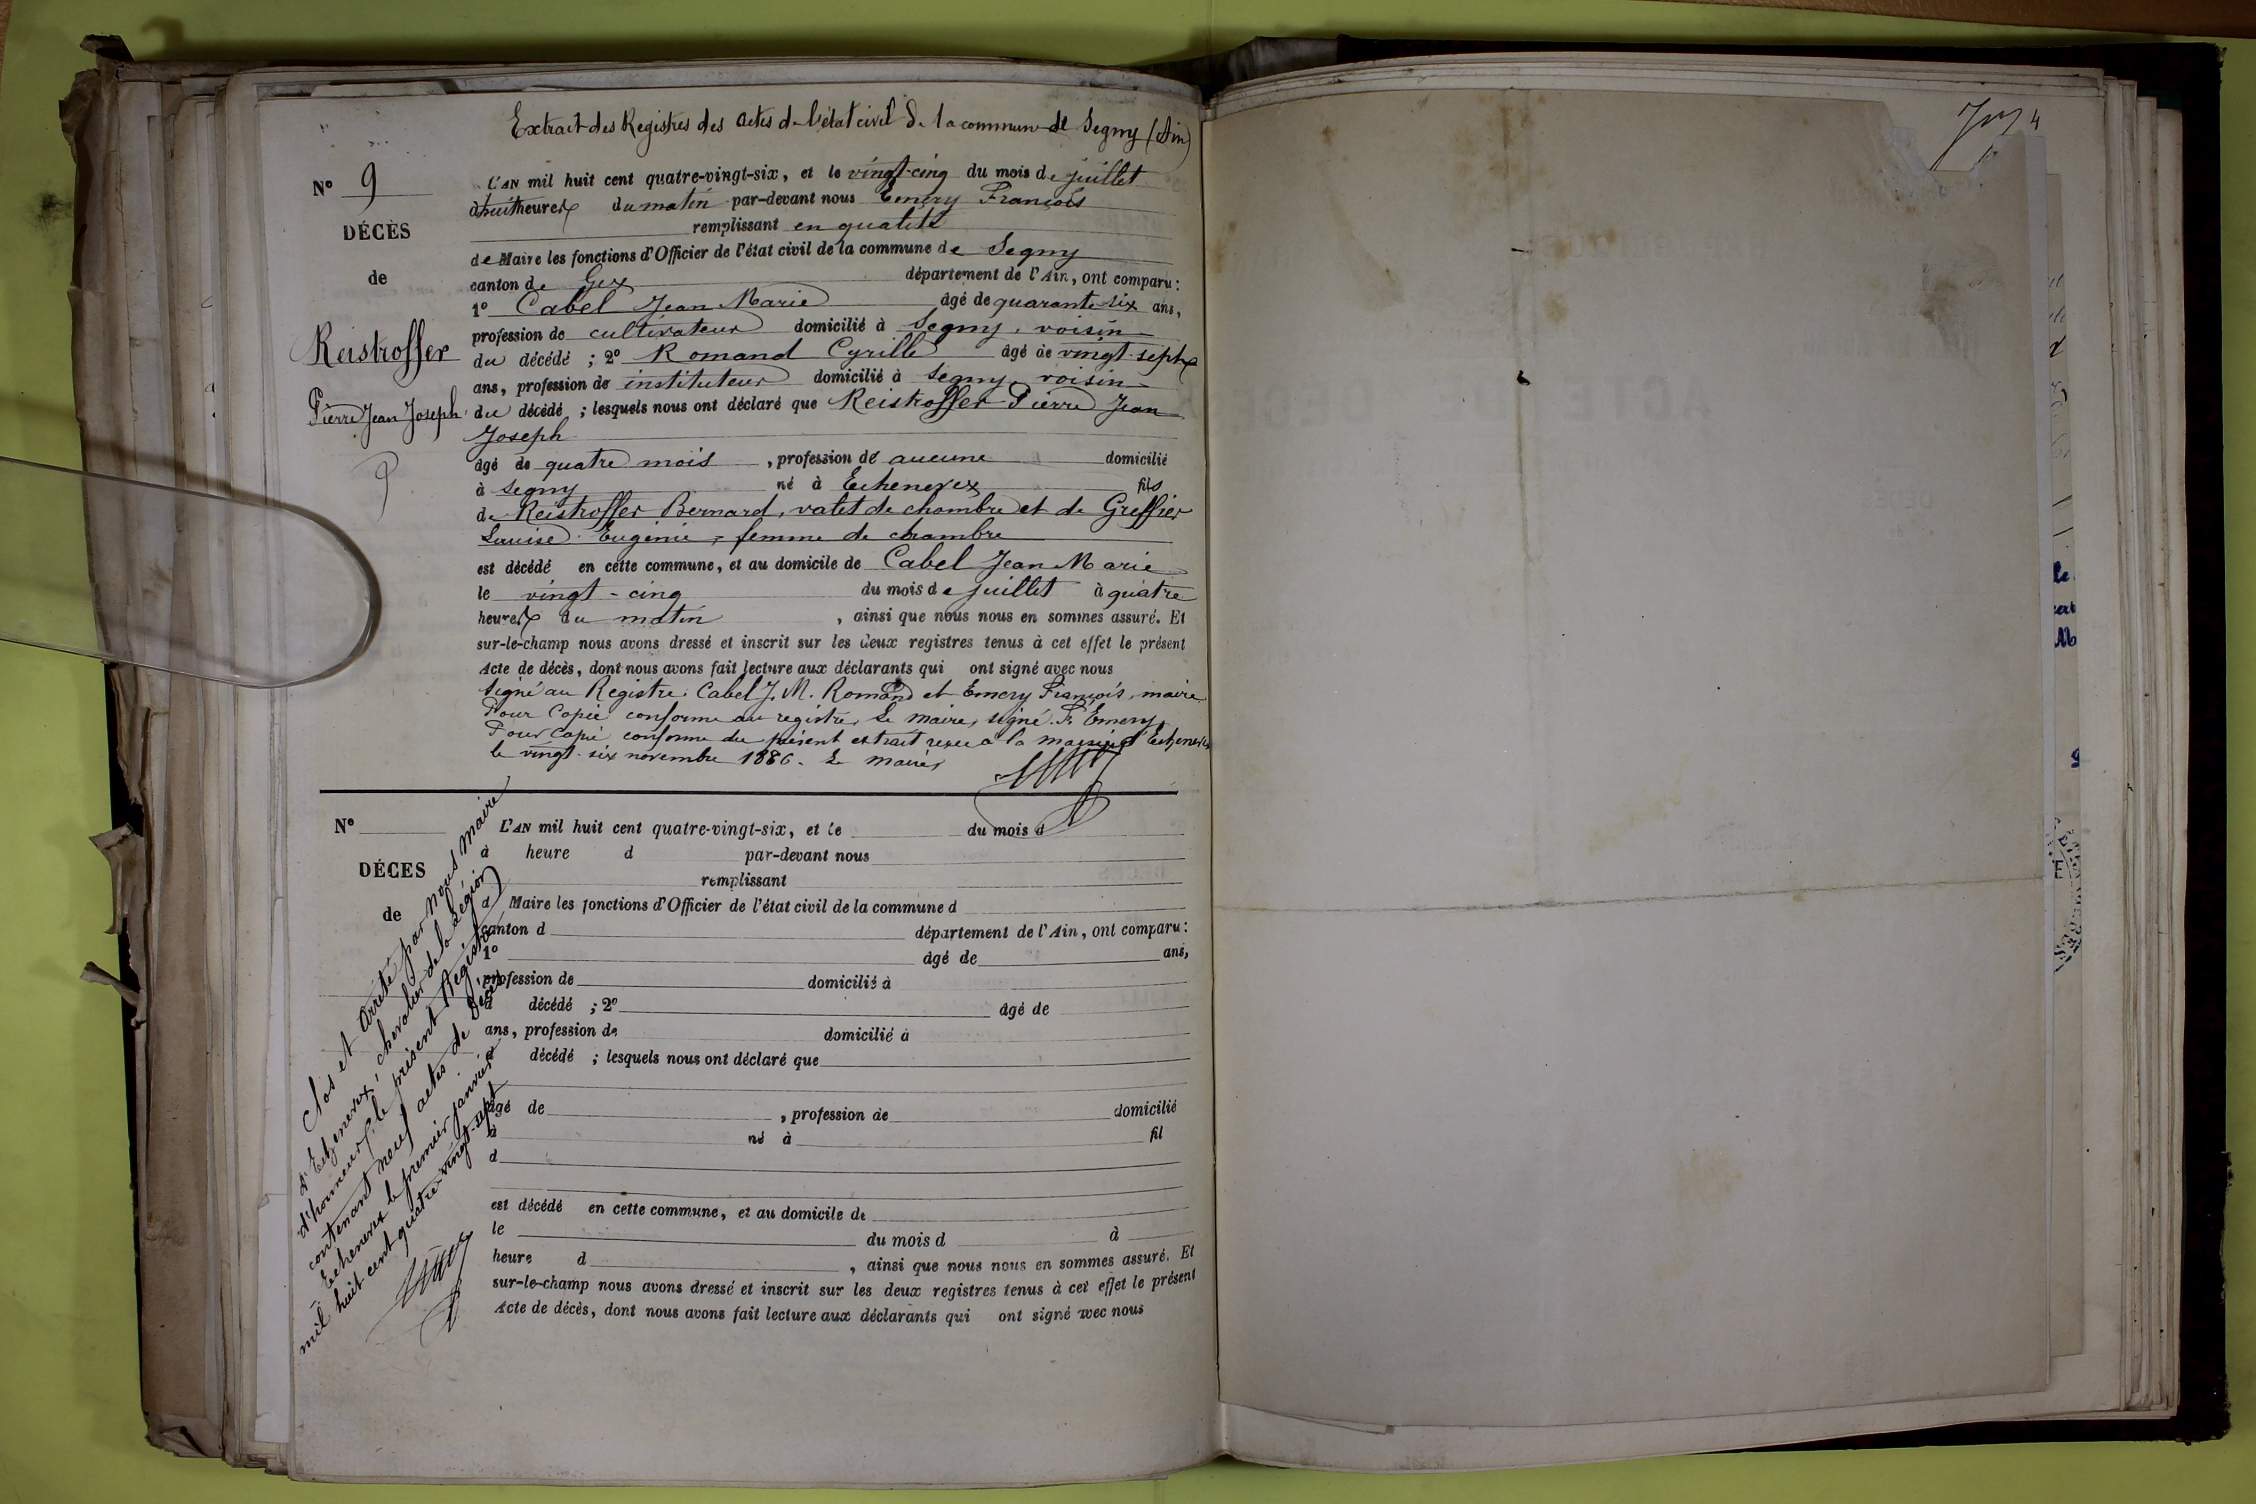 Extrait des Registres des actes de l'état civil de la commune de Segny (Ain)
N° 9
DÉCÈS
de
Reistroffer
Pierre Jean Joseph
L'AN mil huit cent quatre-vingt-six, et le vingt-cinq du mois de juillet
à huit heures du matin par-devant nous Emery François
remplissant en qualité
de Maire les fonctions d'Officier de l'état civil de la commune de Segny
canton de Gex département de l'Ain, ont comparu :
1° Cabel Jean Marie âgé de quarante-six ans,
profession de cultivateur domicilié à Segny, voisin
du décédé ; 2° Romand Cyrille âgé de vingt-sept
ans, profession de instituteur domicilié à Segny, voisin
du décédé ; lesquels nous ont déclaré que Reistroffer Pierre Jean
Joseph
âgé de quatre mois, profession de aucune domicilié
à Segny né à Echenevex fils
de Reistroffer Bernard, valet de chambre et de Greffier
Louise Eugénie, femme de chambre
est décédé en cette commune, et au domicile de Cabel Jean Marie
le vingt-cinq du mois de juillet à quatre
heures du matin, ainsi que nous nous en sommes assuré. Et
sur-le-champ nous avons dressé et inscrit sur les deux registres tenus à cet effet le présent
Acte de décès, dont nous avons fait lecture aux déclarants qui ont signé avec nous
Signé au Registre : Cabel J. M. Romand et Emery François, maire
Pour Copie conforme au registre, Le maire, signé : F. Emery
Pour Copie conforme du présent extrait reçu à la mairie d'Echenevex
le vingt-six novembre 1886. Le maire,
N°
DÉCÈS
de
L'AN mil huit cent quatre-vingt-six, et le du mois d
à heure d par-devant nous
remplissant
d Maire les fonctions d'Officier de l'état civil de la commune d
canton d département de l'Ain, ont comparu :
1° âgé de ans,
profession de domicilié à
d décédé ; 2° âgé de
ans, profession de domicilié à
d décédé ; lesquels nous ont déclaré que
âgé de , profession de domicilié
à né à fil
d
est décédé en cette commune, et au domicile de
le du mois d à
heure d , ainsi que nous nous en sommes assuré. Et
sur-le-champ nous avons dressé et inscrit sur les deux registres tenus à cet effet le présent
Acte de décès, dont nous avons fait lecture aux déclarants qui ont signé avec nous
Clos et arrêté par nous maire
d'Echenevex, chevalier de la légion
d'honneur, le présent Registre
contenant neuf actes de décès
Echenevex le premier janvier
mil huit cent quatre-vingt-sept